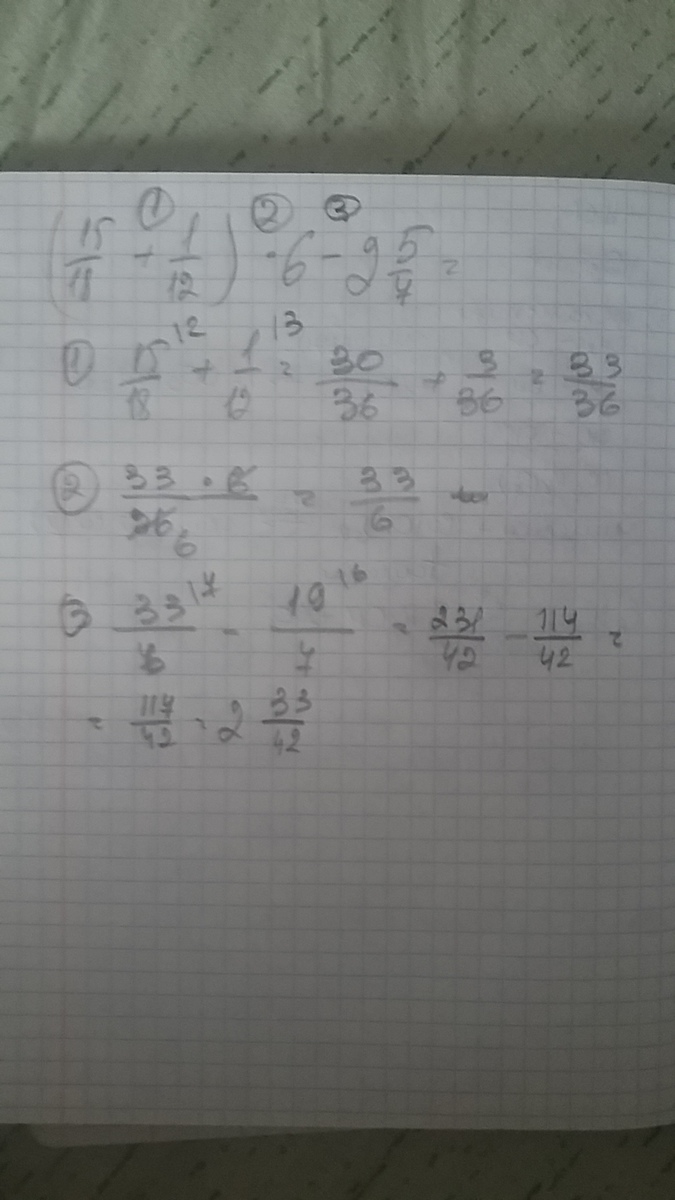 ① ② ③
(15/18 + 1/12) · 6 - 2 5/7 =
① 15/18 |2 + 1/12 |3 = 30/36 + 3/36 = 33/36
② 33 · 6/36 6 = 33/6
3 33/6 |7 - 19/7 |6 = 231/42 - 114/42 =
= 117/42 = 2 33/42